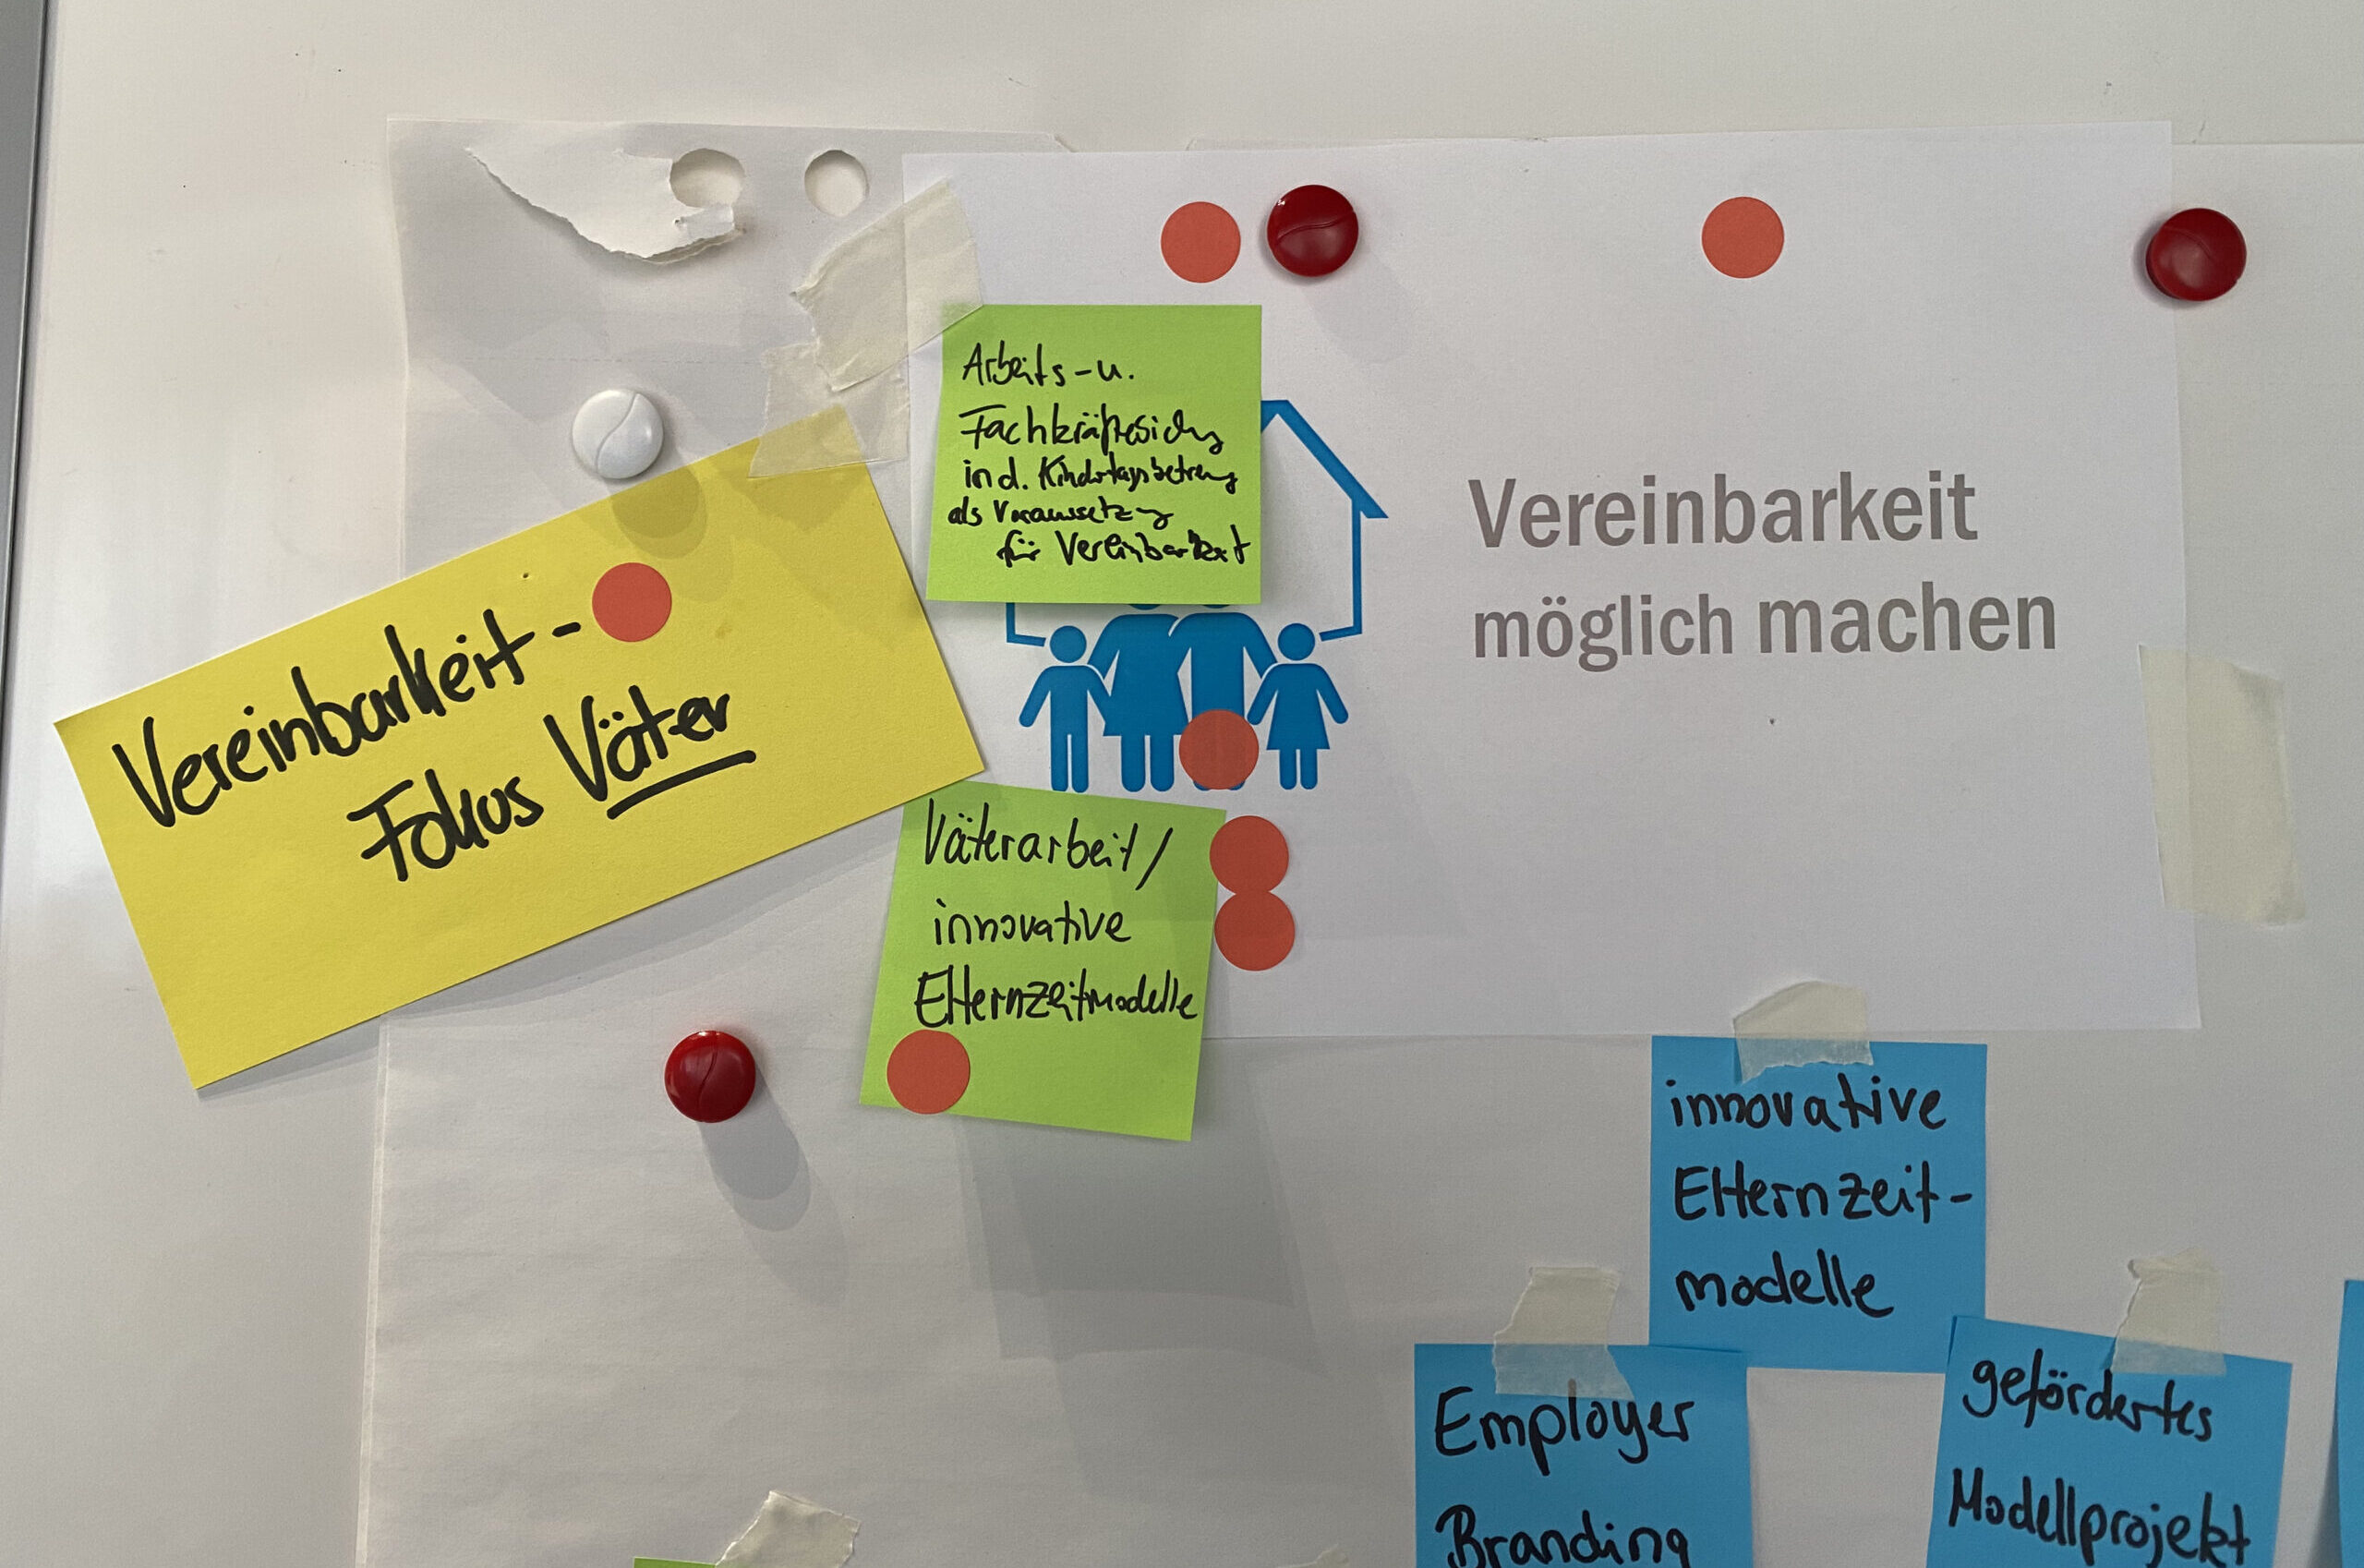 Arbeits-u.
Fachkräftesichg
in d. Kindertagsbetreug
als Voraussetzg
für Vereinbarkeit
Vereinbarkeit
möglich machen
Vereinbarkeit -
Fokus Väter
Väterarbeit/
innovative
Elternzeitmodelle
innovative
Elternzeit-
modelle
Employer
Branding
gefördertes
Modellprojekt